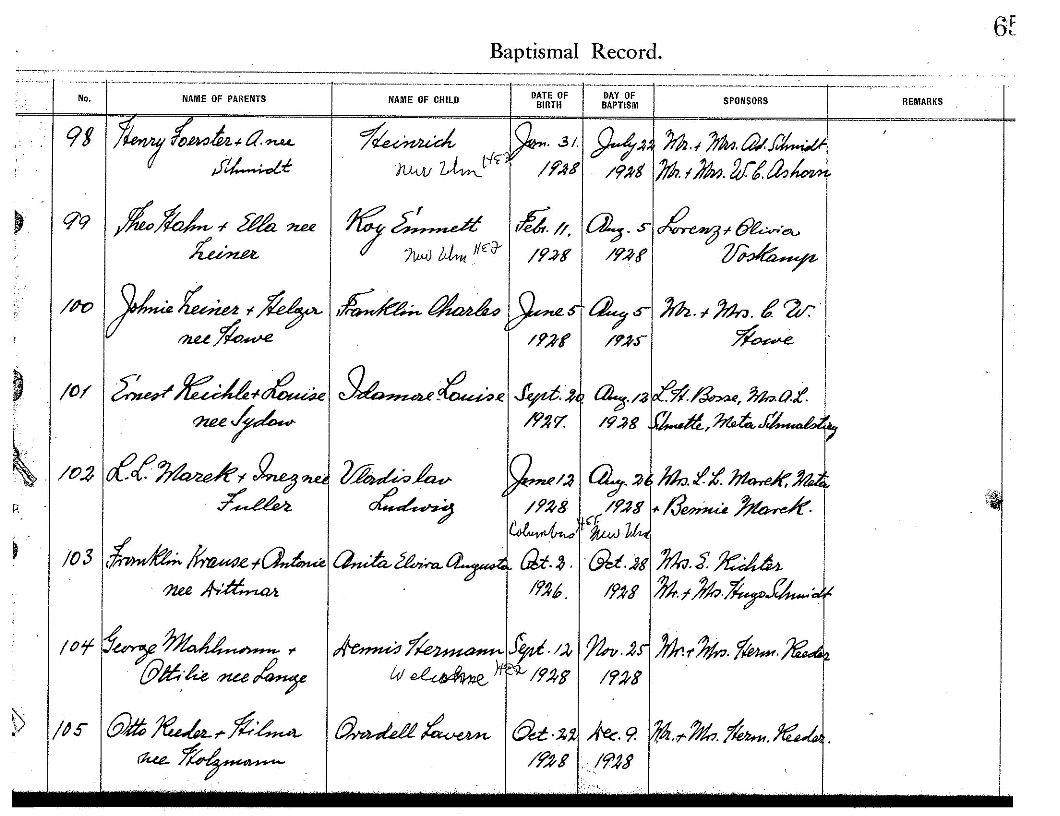 65
Baptismal Record.
No. NAME OF PARENTS NAME OF CHILD DATE OF BIRTH DAY OF BAPTISM SPONSORS REMARKS
98 Henry Foerster + A. nee Heinrich Jan. 31. July 22 Mr. + Mrs. Ad. Schmidt
Schmidt New Ulm HEJ 1928 1928 Mr. + Mrs. W. C. Ashorn
99 Theo Hahn + Ella nee Roy Emmett Febr. 11, Aug. 5 Lorenz + Olivia
Leiner New Ulm HEJ 1928 1928 Voskamp
100 Johnie Leiner + Helger Franklin Charles June 5 Aug 5 Mr. + Mrs. C. W.
nee Howe 1928 1925 Howe
101 Ernest Reichle + Louise Idamore Louise Sept. 20 Aug. 12 L. H. Bosse, Mrs. A. L.
nee Sydow 1927. 1928 Meta
102 L. L. Marek + Inez nee Vladislav June 12 Aug. 26 Mrs. L. L. Marek, Meta
Fuller Ludwig 1928 1928 + Bennie Marek.
Columbus New Ulm
103 Franklin Krause + Antonie Anita Elvira Augusta Oct. 2. Oct. 28 Mrs. E. Richter
nee Dittmar 1926. 1928 Mr. + Mrs. Hugo Schmidt
104 George Mahlmann + Dennis Hermann Sept. 12 Nov. 25 Mr. + Mrs. Herm. Reeder
Ottilie nee Lange Welcome HEJ 1928 1928
105 Otto Reeder + Hilma Ovardell Lavern Oct. 22 Dec. 9. Mr. + Mrs. Herm. Reeder.
nee Holzmann 1928 1928